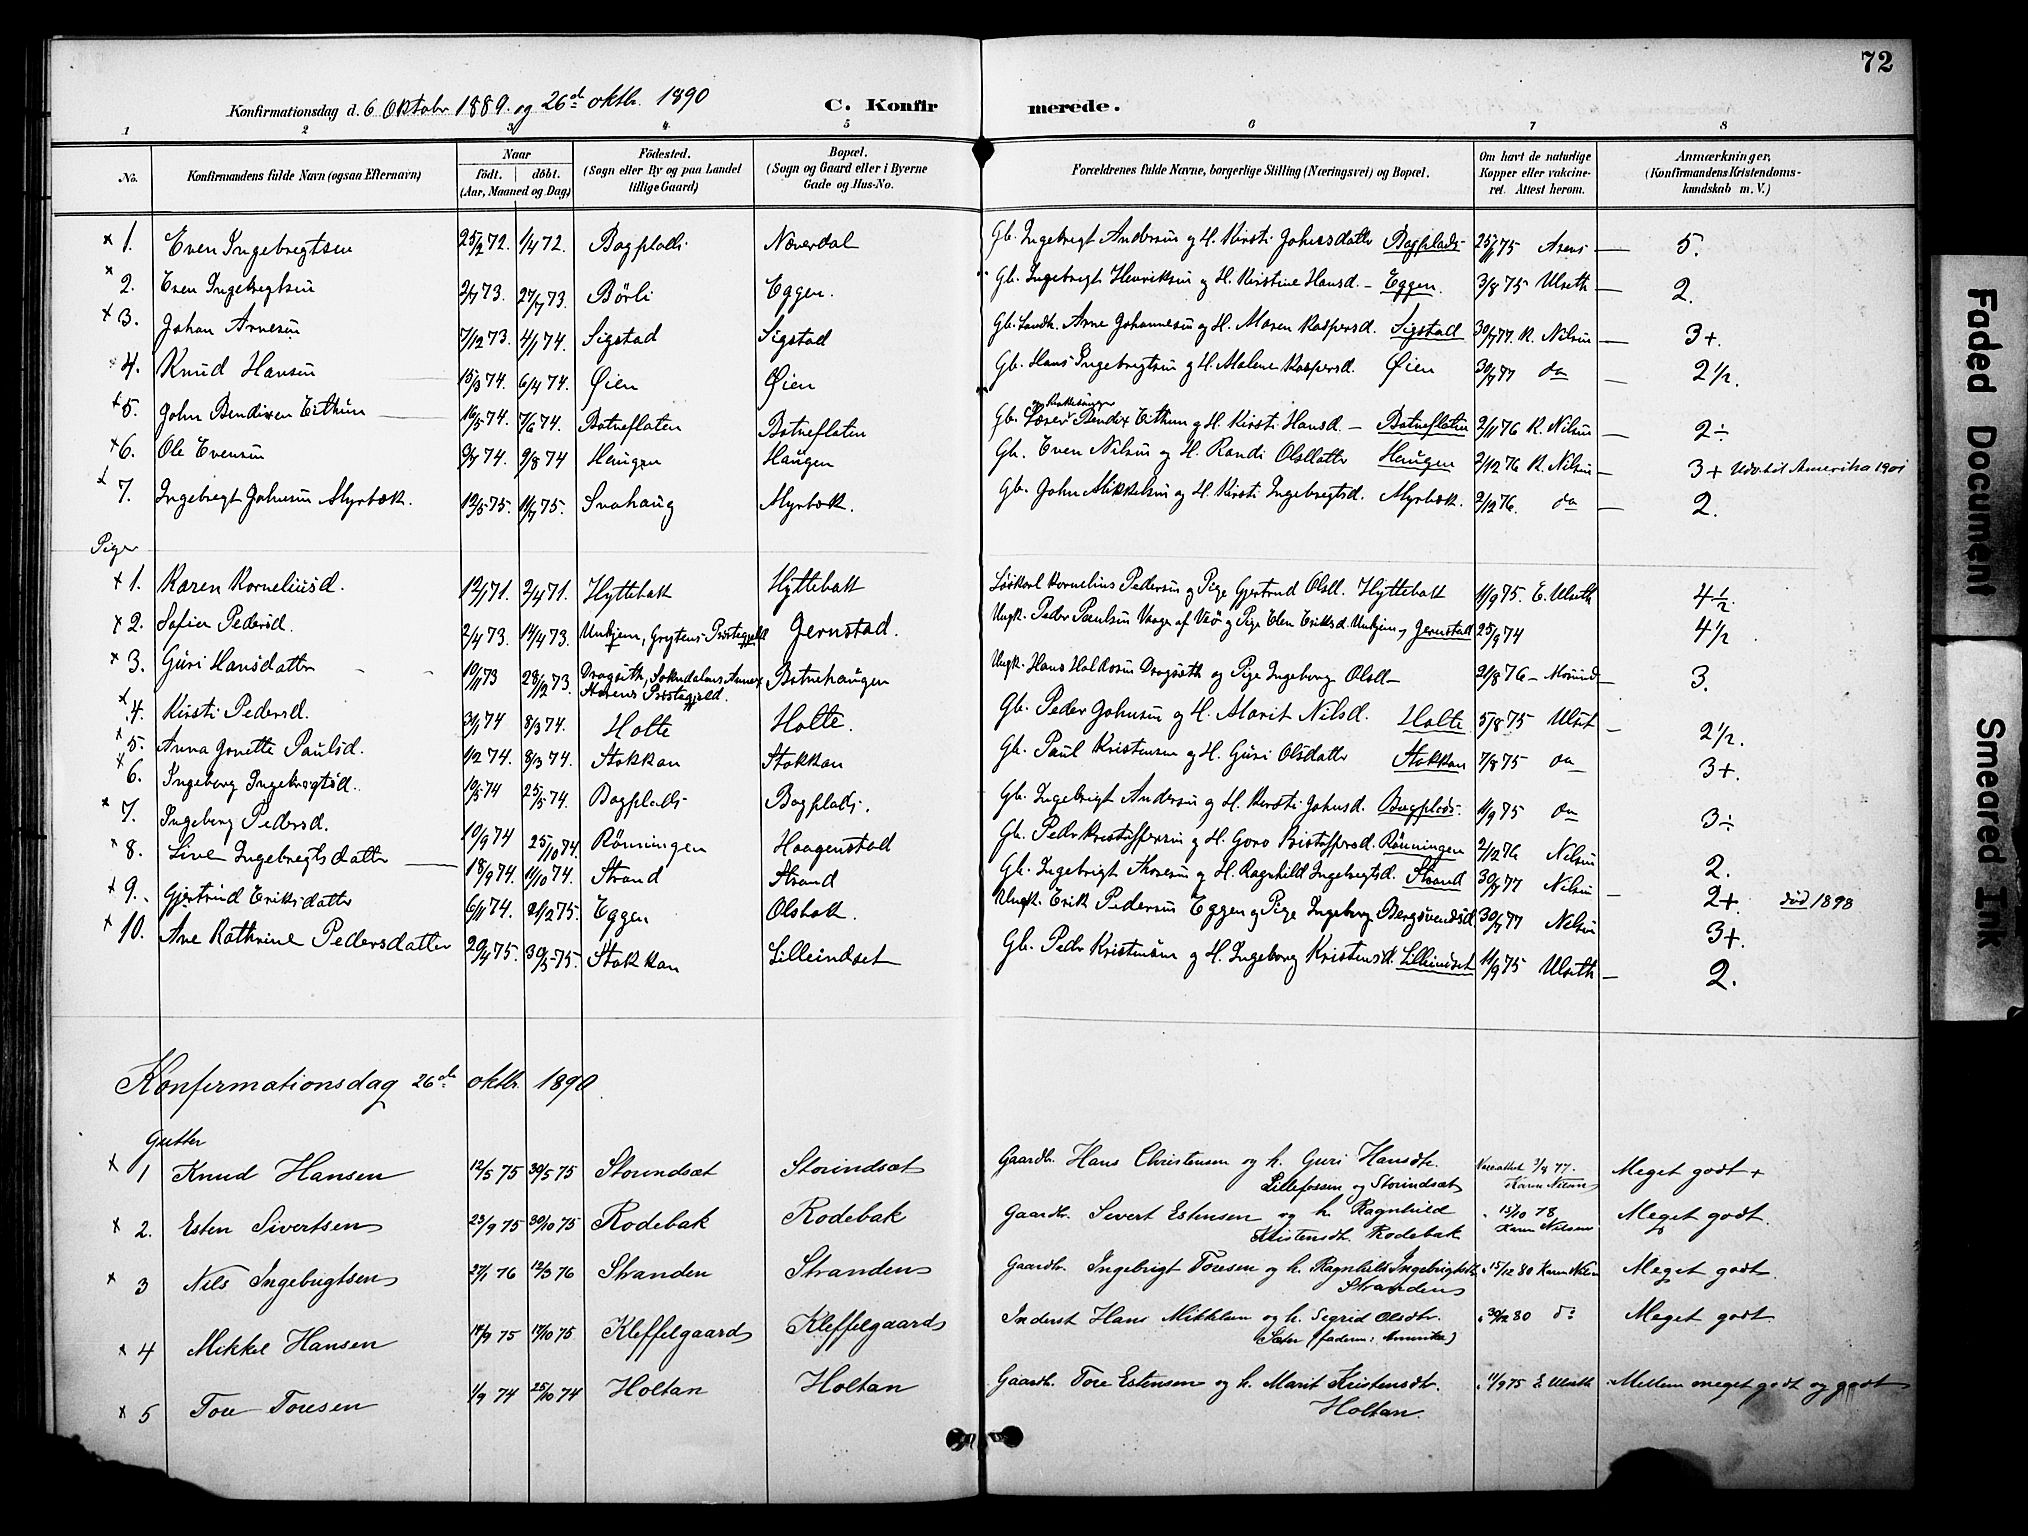 72
Konfirmationsdag d. 6 Oktobr 1889. og 26de oktbr. 1890 C. Konfirmerede.
1 2 3 4 5 6 7 8
No. Konfirmandens fulde Navn (ogsaa Efternavn) Naar født. døbt. (Aar, Maaned og Dag) Fødested. (Sogn eller By og paa Landet tillige Gaard) Bopæl. (Sogn og Gaard eller i Byerne Gade og Hus-No. Forældrenes fulde Navne, borgerlige Stilling (Næringsvei) og Bopæl. Om havt de naturlige Kopper eller vakcineret. Attest herom. Anmærkninger, (Konfirmandens Kristendomskundskab m. V.)
x 1. Even Ingebregtsen 25/2 72. 1/4 72. Bagplads Næverdal Gb. Ingebregt Andersen og H. Kirsti Johnsdatter Bagplads 75 — 5.
x 2. Even Ingebregtsen 2/7 73. 27/7 73. Børli Eggen. Gb. Ingebregt Henriksen og H. Kirstine Hansd. – Eggen. 3/8 75 Ulseth — 2.
x 3. Johan Arnesen 7/12 73. 4/1 74. Sigstad Sigstad Gb. Arne Johannesen og H. Maren Kaspersd. Sigstad 30/7 77. K. Nilsen — 3+.
4. Knud Hansen 15/3 74. 6/4 74. Øien Øien Gb. Hans Ingebregtsen og H. Malene Kaspersd. Øien 30/7 77 do — 2½.
x 5. John Bendixen Eithun 16/5 74. 7/6 74. Botneflaten Botneflaten Gb. og Kirkesanger Lærer Bendix Eithun og H. Kirsti Hansd. – Botneflaten 2/11 76 K. Nilsen — 2÷
x 6. Ole Evensen 3/7 74. 9/8 74 Haugen Haugen Gb. Even Nilsen og H. Randi Olsdatter Haugen 2/12 76 K. Nilsen — 3+ Udv. til Amerika 1901
x 7. Ingebregt Johnsen Myrbæk. 12/5 75. 11/7 75. Svahaug Myrbæk. Gb. John Mikkelsen og H. Kirsti Ingebregtsd. Myrbæk. 2/12 76. do — 2.
Piger
x 1. Karen Korneliusd. 12/1 71. 2/4 71. Hyttebak Hyttebak Løskarl Kornelius Pedersen og Pige Gjertrud Olsd. Hyttebak 11/9 75. E. Ulseth 4½.
x 2. Sofie Pedersd. 2/4 73. 14/4 73. Unkjem, Grytens Præstegjeld Gernstad. Ungk. Peder Paulsen Vaage af Veø og Pige Elen Eriksd. Unkjem, Gernstad 25/9 74 4½.
x 3. Guri Hansdatter 10/11 73 28/12 73. Dragseth, Soknedalens Annex Størens Præstegjeld. Botnehaugen Ungk. Hans Haldorsen Dragseth og Pige Ingeborg Olsd – 21/8 76 – — 3.
x 4. Kirsti Pedersd. 31/1 74 8/3 74. Holte Holte. Gb. Peder Johnsen og H. Marit Nilsd. Holte 5/8 75 Ulset — 2½.
x 5. Anna Jonette Paulsd. 1/2 74. 8/3 74. Stokkan Stokkan Gb. Paul Kristensen og H. Guri Olsdatter Stokkan 7/8 75 do 3+.
x 6. Ingeborg Ingebregtsd. 10/5 74 25/5 74. Bagplads Bagplads. Gb. Ingebrigt Andersen og H. Kirsti Johnsd. Bagplads. 11/9 75 do 3÷
x 7. Ingeborg Pedersd. 10/9 74 25/10 74. Rönningen Haagenstad Gb. Peder Kristoffersen og H. Goro Kristoffersd. Rönningen 2/12 76 Nilsen 2.
x 8. Sive Ingebregtsdatter 18/9 74. 11/10 74. Strand Strand Gb. Ingebrigt Thoresen og H. Ragnhild Ingebregtsd. Strand 30/7 77 Nilsen — 2+. död 1898
x 9. Gjertrud Eriksdatter 6/11 74. 21/2 75. Eggen Olsbak. Ungk. Erik Pedersen Eggen og Pige Ingeborg Bergsvendsd. 30/7 77 Nilsen 3+.
x 10. Ane Kathrine Pedersdatter 20/4 75. 30/5 75. Stokkan Lilleindset Gb. Peder Kristensen og H. Ingeborg Kristensd. Lilleindset 11/9 75 Ulseth — 2.
Konfirmationsdag 26de oktbr. 1890.
Gutter
x 1 Knud Hansen 12/5 75 30/5 75 Storindsæt Storindsæt Gaardbr. Hans Christensen og h. Guri Hansdtr. Lillefossen og Storindsæt 77. Karen Nilsen Meget godt +
x 2. Esten Sivertsen 23/9 75 30/10 75 Rodebak Rodebak Gaardbr. Sivert Estensen og h. Ragnhild Kristensdt. Rodebak 15/10 78 Karen Nilsen Meget godt.
x 3 Nils Ingebrigtsen 27/1 76 12/3 76 Stranden Stranden Gaardbr. Ingebrigt Toresen og h. Ragnhild Ingebrigtsdtr Stranden 15/12 80 Karen Nilsen Meget godt.
x 4 Mikkel Hansen 14/9 75 17/10 75 Kleffelgaard Kleffelgaard Inderst Hans Mikkelsen og h. Sigrid Olsdtr. Sæter (faderen i Amerika) 30/12 80 do Meget godt
x 5 Tore Toresen 1/9 74 25/10 74 Holtan Holtan Gaardbr. Tore Estensen og h. Marit Kristensdtr. Holtan. 11/9 75 E. Ulseth Mellem meget godt og godt
Faded Document
Smeared Ink